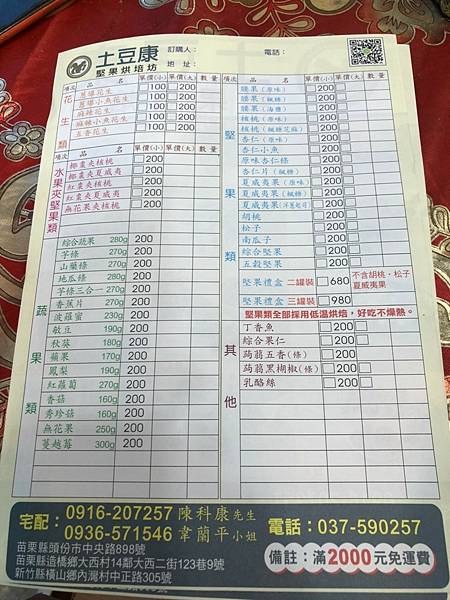 土豆康
堅果烘培坊
訂購人：
電話：
地址：
項次 品名 單價(小) 單價(大) 數量
花生類
蔥爆花生 100 200
蔥爆小魚花生 100 200
麻辣花生 100 200
麻辣小魚花生 100 200
五香花生 100 200
項次 品名 單價(小) 單價(大) 數量
水果夾堅果類
椰棗夾核桃 200
椰棗夾夏威夷 200
紅棗夾核桃 200
紅棗夾夏威夷 200
無花果夾核桃 200
蔬果類
綜合蔬果 280g 200
芋條 270g 200
山藥條 270g 200
地瓜條 280g 200
芋條三合一 270g 200
香蕉片 270g 200
波蘿蜜 230g 200
敏豆 190g 200
秋葵 180g 200
蘋果 170g 200
鳳梨 190g 200
紅蘿蔔 270g 200
香菇 160g 200
秀珍菇 160g 200
無花果 250g 200
蔓越莓 300g 200
項次 品名 單價(小) 單價(大) 數量
堅果類
腰果(原味) 200
腰果(楓糖) 200
腰果(海鹽) 200
核桃(原味) 200
核桃(楓糖芝麻) 200
杏仁(原味) 200
杏仁小魚 200
原味杏仁條 200
杏仁片(楓糖) 200
夏威夷果(原味) 200
夏威夷果(楓糖) 200
夏威夷果(洋蔥起司) 200
胡桃 200
松子 200
南瓜子 200
綜合堅果 200
五穀堅果 200
堅果禮盒 二罐裝 680 不含胡桃、松子
夏威夷果
堅果禮盒 三罐裝 980
堅果類全部採用低溫烘焙，好吃不燥熱。
其他
丁香魚 200
綜合果仁 200
蒟蒻五香(條) 200
蒟蒻黑胡椒(條) 200
乳酪絲 200
宅配：0916-207257 陳科康先生
0936-571546 韋蘭平小姐
電話：037-590257
苗栗縣頭份市中央路898號
苗栗縣造橋鄉大西村14鄰大西二街123巷9號
新竹縣橫山鄉內灣村中正路305號
備註：滿2000元免運費